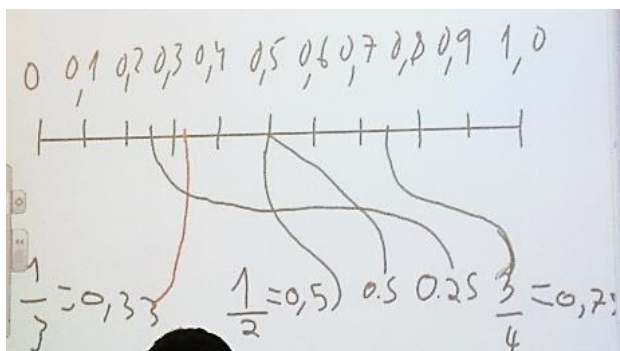 0 0,1 0,2 0,3 0,4 0,5 0,6 0,7 0,8 0,9 1,0
1/3=0,33 1/2=0,5 0.5 0.25 3/4=0,7